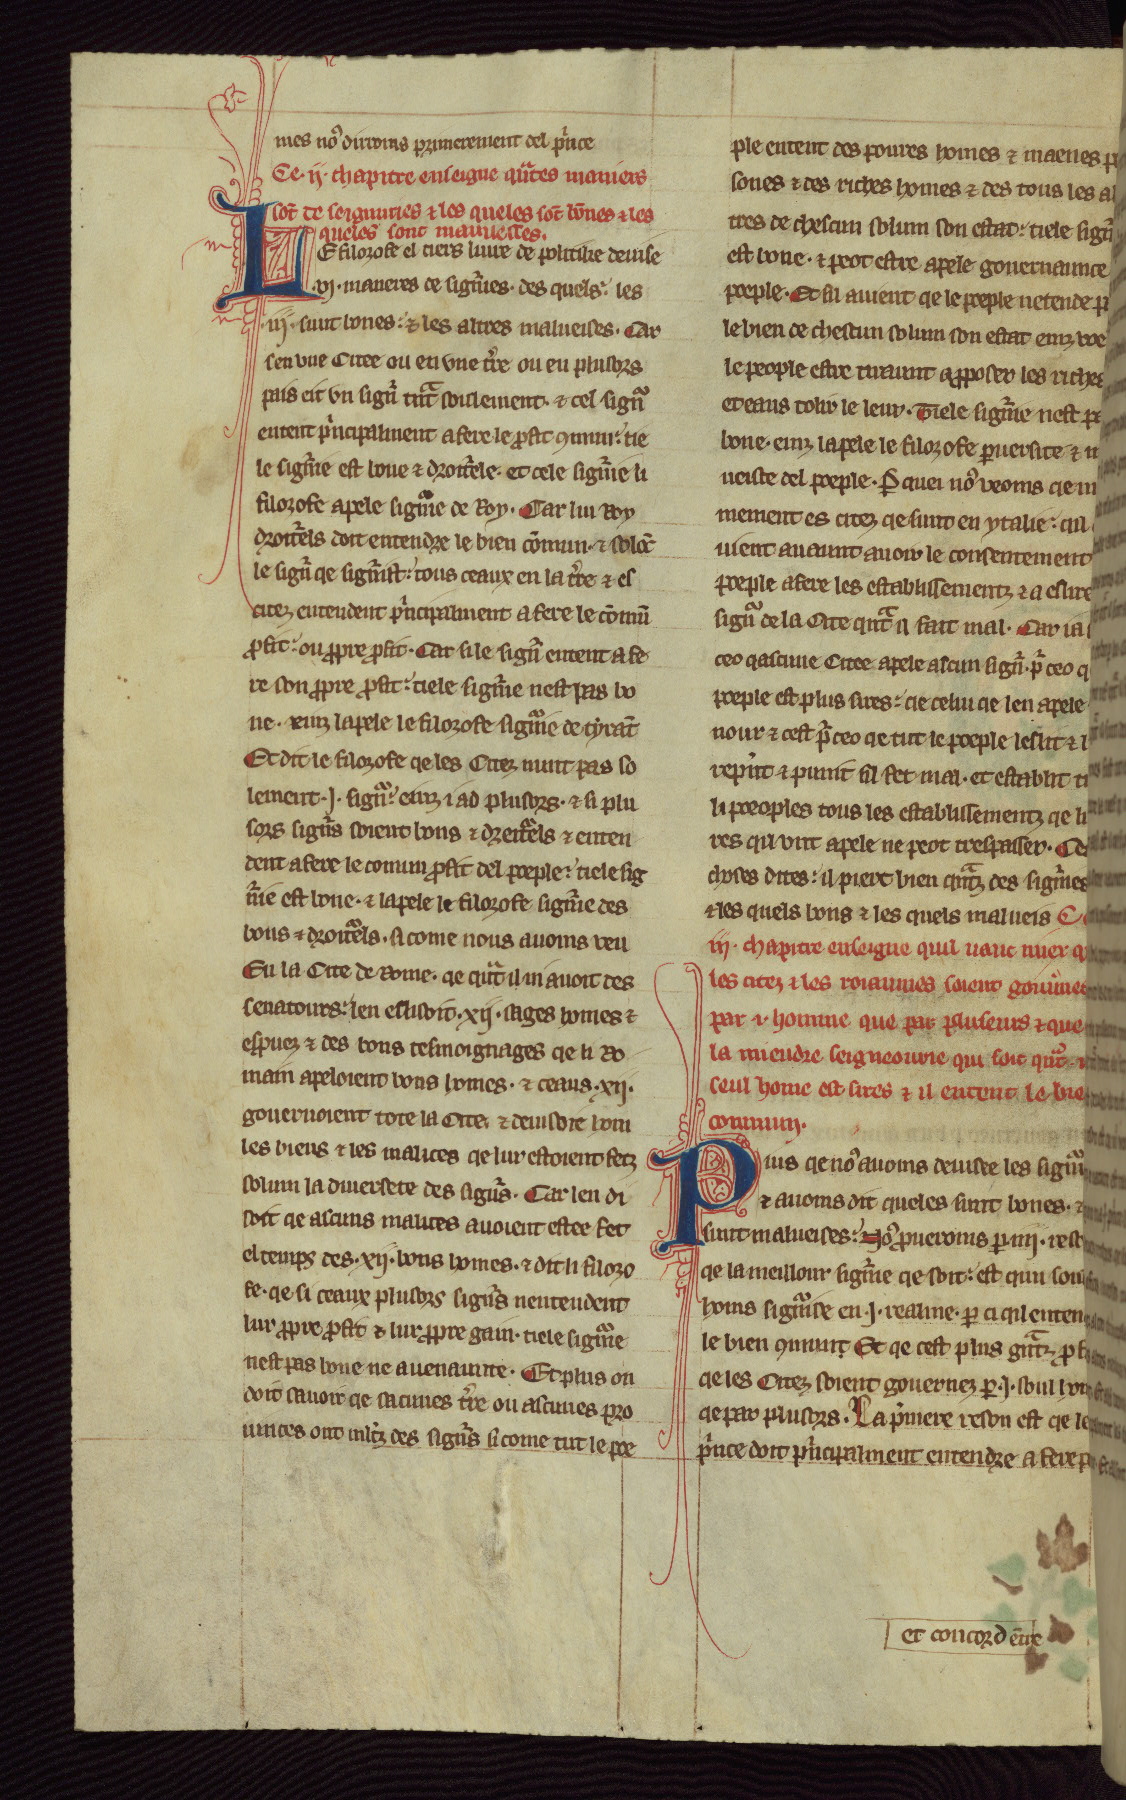 mes no9 dirroms primerement del pince
Ce .ij. chapitre enseigne quates maniers
sot de seignuries & les queles sot bones & les
queles sont mauueises.
LE filozofe el tiers liure de politike deuise
.vj. maneres de signries. des quels: les
.iij. sunt bones: & les altres malueises. Car
sen vne Citee ou en vne tre ou en plusors
pais eit vn signr tant soulement. & cel signr
entent principalment a fere le profit commun: tie
le signrie est bone & droiturele. et cele signrie li
filozofe apele signrie de Roy. Car lui Roy
droiturels doit entendre le bien comun. & solonc
le signr qe signrist: tous ceaux en la tre & es
citez entendent principalment a fere le comun
profit: ou propre profit. Car si le signr entent a fe
re son propre profit: tiele signrie nest pas bo
ne. einz lapele le filozofe signrie de tyrant
Et dit le filozofe qe les Citez nunt pas so
lement .j. signr: einz i ad plusors. & si plu
sors signrs soient bons & dreiturels & enten
dent a fere le comun profit del poeple: tiele sig
nrie est bone. & lapele le filozofe signrie des
bons & droiturels. si come nous auoms veu
En la Cite de Rome. qe quant il in auoit des
senatours: len eslisoit .xij. sages homes &
espuez & des bons tesmoignages qe li Ro
main apeloient bons homes. & ceaus .xij.
gouernoient tote la Cite. & deuisoie hom
les biens & les malices qe lur estoient fetz
solum la diuersete des signrs. Car len di
soit qe ascuns malices auoient estee fet
el temps des .xij. bons homes. & dit li filozo
fe. qe si ceaux plusors signrs nentendent
lur propre profit & lur propre gain. tiele signrie
nest pas bone ne auenaunte. Et plus on
doit sauoir qe sacunes tre ou ascunes pro
uinces ont mltz des signrs si come tut le poe
ple entent des poures homes & maenes p
sones & des riches homes & des tous les al
tres de chescun solum son estat: tiele signr
est bone. & peot estre apele gouernaunce
poeple. Et sil auient qe le poeple netende p
le bien de chescun solum son estat einz voe
le people estre tiraunt & opposer les riches
et eaus tolir le leur. Tiele signrie nest pa
bone. einz lapele le filozofe peruersite & m
ueiste del poeple. Par quei no9 veoms qe m
mement es citez qe sunt en ytalie: cul
uient auaunt auoir le consentement
poeple a fere les establissementz & a eslire
signr de la Cite quant il fait mal. Car ia
ceo qascune Citee apele ascun signr. pr ceo q
poeple est plus sires: qe celui qe len apele
nour & cest pr ceo qe tut le poeple leslit & l
reprent & punit sil fet mal. et establit
li poeoples tous les establissementz qe li
res qil vnt apele ne peot trespasser. Ces
choses dites: il piert bien quantz des signries
& les quels bons & les quels malueis Ce
iij. chapitre enseigne quil uaut mier q
les citez & les roiaumes soient gouuernes
par .i. homme que par pluseurs & que
la mieudre seigneourie qui soit quant
seul home est sires & il entent le bie
commun.
Puis qe no9 auoms deuisee les signr
& auoms dit queles sunt bones. &
sunt malueises: No9 proueroms par iiij. res
qe la meillour signrie qe soit: est qun soul
homs signrise en .j. realme. par ci qil enten
le bien commun. Et qe cest plus grantz prof
qe les Citez soient gouernez par .j. soul hom
qe par plusors. La primere reson est qe le
prince doit principalment entendre a fere p
et concord entre